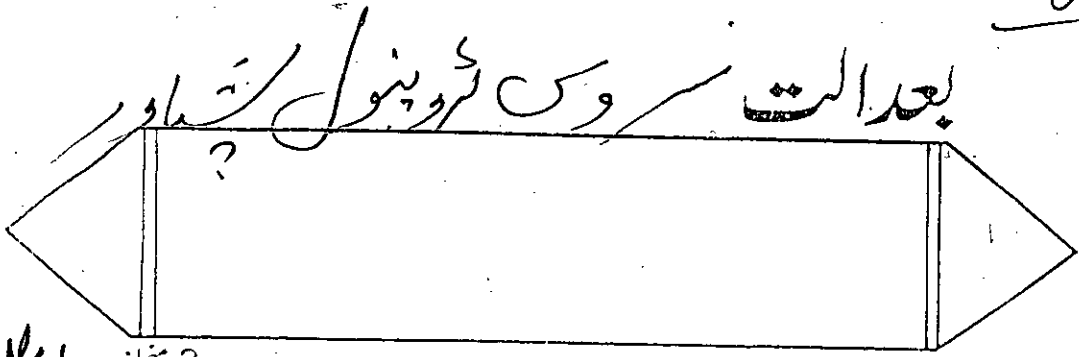 بعدالت سروس ٹریبونل پشاور